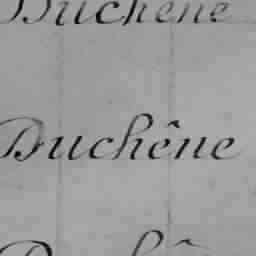 Duchêne
Duchêne